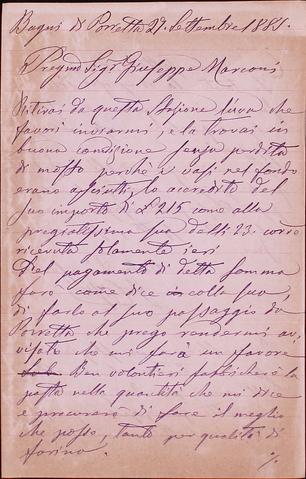 Bagni di Porretta 29. Settembre 1885.
Pregmo Sigr Giuseppe Marconi
Ritirai da questa Stazione l'uva che
favorì inviarmi, e la trovai in
buona condizione senza perdita
di mosto perchè i vasi nel fondo
erano asciutti, lo accredito del
suo importo di £ 215 come alla
pregiatissima sua delli 23. corre
ricevuta solamente ieri
Del pagamento di detta somma
farò come dice colla sua,
di farlo al suo passaggio da
Porretta che prego rendermi av
visato che mi farà un favore
Ben volontieri fabbricherò la
pasta nella quantità che mi dice
e procurerò di fare il meglio
che posso, tanto per qualità di
farina.
%